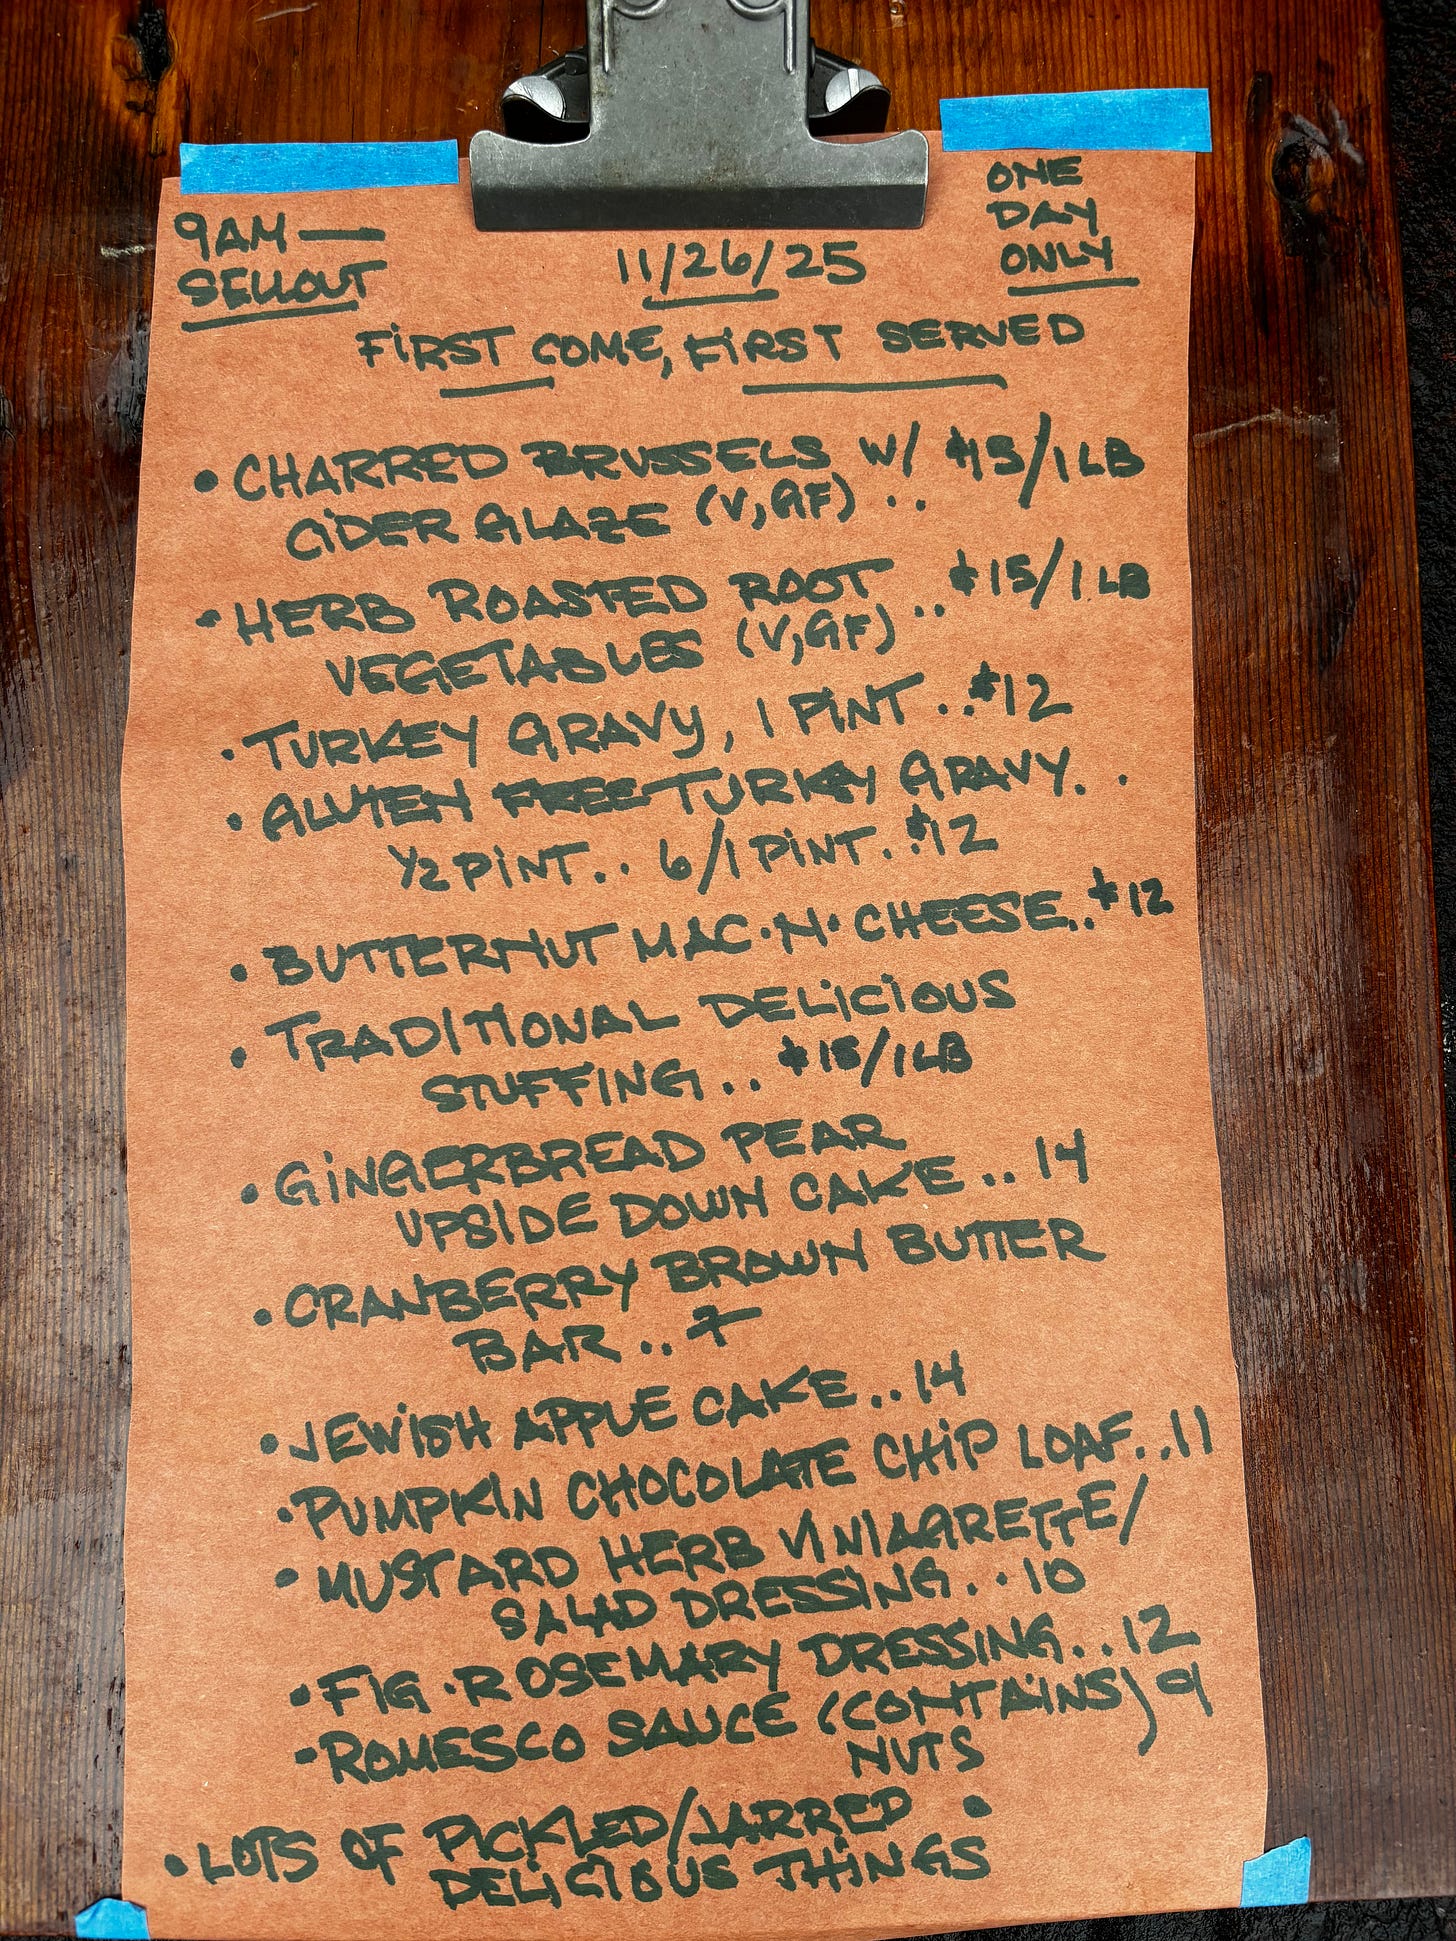 9AM —
SELLOUT
11/26/25
ONE
DAY
ONLY
FIRST COME, FIRST SERVED
• CHARRED BRUSSELS W/ $15/1LB
CIDER GLAZE (V,GF) ..
• HERB ROASTED ROOT ..$15/1LB
VEGETABLES (V,GF)
• TURKEY GRAVY, 1 PINT ..$12
• GLUTEN FREE TURKEY GRAVY. .
1/2 PINT.. 6/1 PINT..$12
• BUTTERNUT MAC·N·CHEESE..$12
• TRADITIONAL DELICIOUS
STUFFING.. $15/1LB
• GINGERBREAD PEAR
UPSIDE DOWN CAKE..14
• CRANBERRY BROWN BUTTER
BAR..7
• JEWISH APPLE CAKE..14
• PUMPKIN CHOCOLATE CHIP LOAF..11
• MUSTARD HERB VINIAGRETTE/
SALAD DRESSING..10
• FIG·ROSEMARY DRESSING..12
• ROMESCO SAUCE (CONTAINS) 9
NUTS
• LOTS OF PICKLED/JARRED •
DELICIOUS THINGS